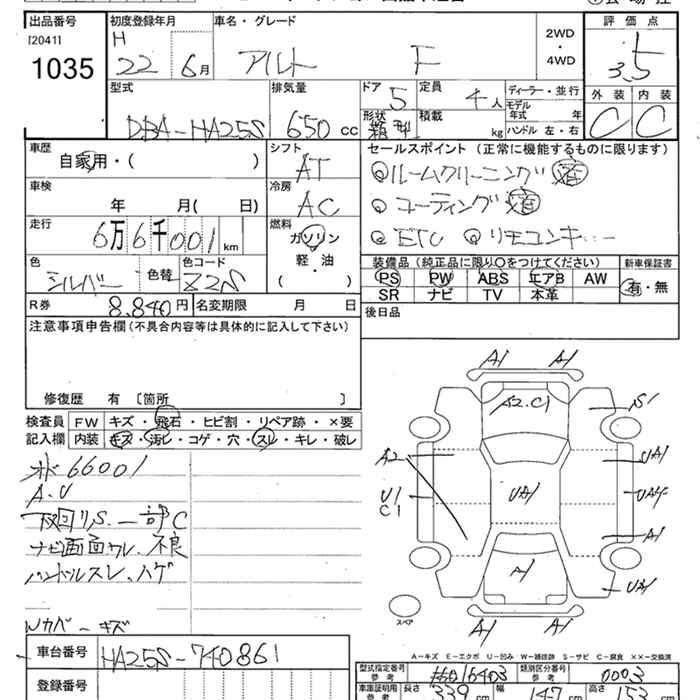 出品番号 初度登録年月 車名・グレード 評価点
[2041] H 2WD
1035 22 6月 アルト F ・ 3.5
4WD
型式 排気量 ドア 定員 ディーラー・並行 外装 内装
DBA-HA25S 650 CC 5 4人 モデル年式 年 C C
形状 積載 kg ハンドル 左・右
箱型
車歴 シフト セールスポイント (正常に機能するものに限ります)
自家用・( ) AT ◎ルームクリーニング済
車検 冷房 ◎コーティング済
年 月( 日) AC ◎ETC ◎リモコンキー
走行 燃料
6万6千001km ガソリン
軽・油
( )
色 色替 色コード 装備品 (純正品に限り○をつけてください) 新車保証書
シルバー Z2S PS PW ABS エアB AW 有・無
SR ナビ TV 本革
R券 8,840円 名変期限 月 日 後日品
注意事項申告欄 (不具合内容等は具体的に記入して下さい)
修復歴 有 [箇所 ]
検査員 FW キズ・飛石・ヒビ割・リペア跡・×要
記入欄 内装 キズ・汚レ・コゲ・穴・スレ・キレ・破レ
66001
A.U
下回りS.一部C
ナビ画面ウレ、不良
ハンドルスレ、ハゲ
Wカバーキズ
A1 A1
A2.C1 S1
A2 UA1
U1 UA1 UA4
C1 A1
A1 UA1
スペア
A1 A1
A-キズ E-エクボ U-凹み W-補修跡 S-サビ C-腐食 ××-交換済
車台番号 HA25S-740861
型式指定番号 参考 16403 類別区分番号 参考 0003
登録番号 車庫証明用 参考 長さ 339cm 幅 147cm 高さ 153cm